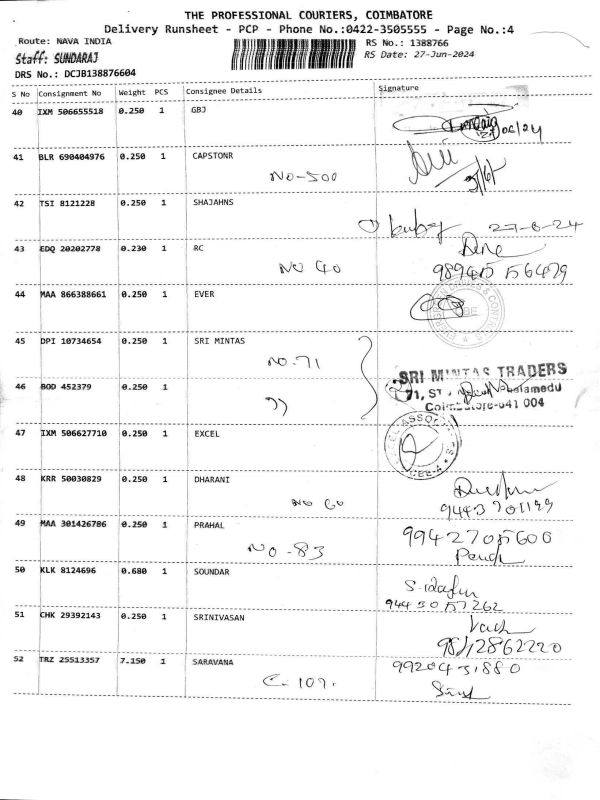 THE PROFESSIONAL COURIERS, COIMBATORE
Delivery Runsheet - PCP - Phone No.:0422-3505555 - Page No.:4
Route: NAVA INDIA
RS No.: 1388766
Staff: SUNDARAJ
RS Date: 27-Jun-2024
DRS No.: DCJB138876604
S No Consignment No Weight PCS Consignee Details Signature
40 IXM 506655518 0.250 1 GBJ
06/24
41 BLR 690404976 0.250 1 CAPSTONR
NO-500
42 TSI 8121228 0.250 1 SHAJAHNS
27-6-24
43 EDQ 20202778 0.230 1 RC
NO 40
44 MAA 866388661 0.250 1 EVER
45 DPI 10734654 0.250 1 SRI MINTAS
NO.71
SRI MINTAS TRADERS
71, ST
Coimbatore-641 004
46 BOD 452379 0.250 1
47 IXM 506627710 0.250 1 EXCEL
48 KRR 50030829 0.250 1 DHARANI
NO 60
49 MAA 301426786 0.250 1 PRAHAL
NO-83
50 KLK 8124696 0.680 1 SOUNDAR
51 CHK 29392143 0.250 1 SRINIVASAN
52 TRZ 25513357 7.150 1 SARAVANA
9920431880
C-109.